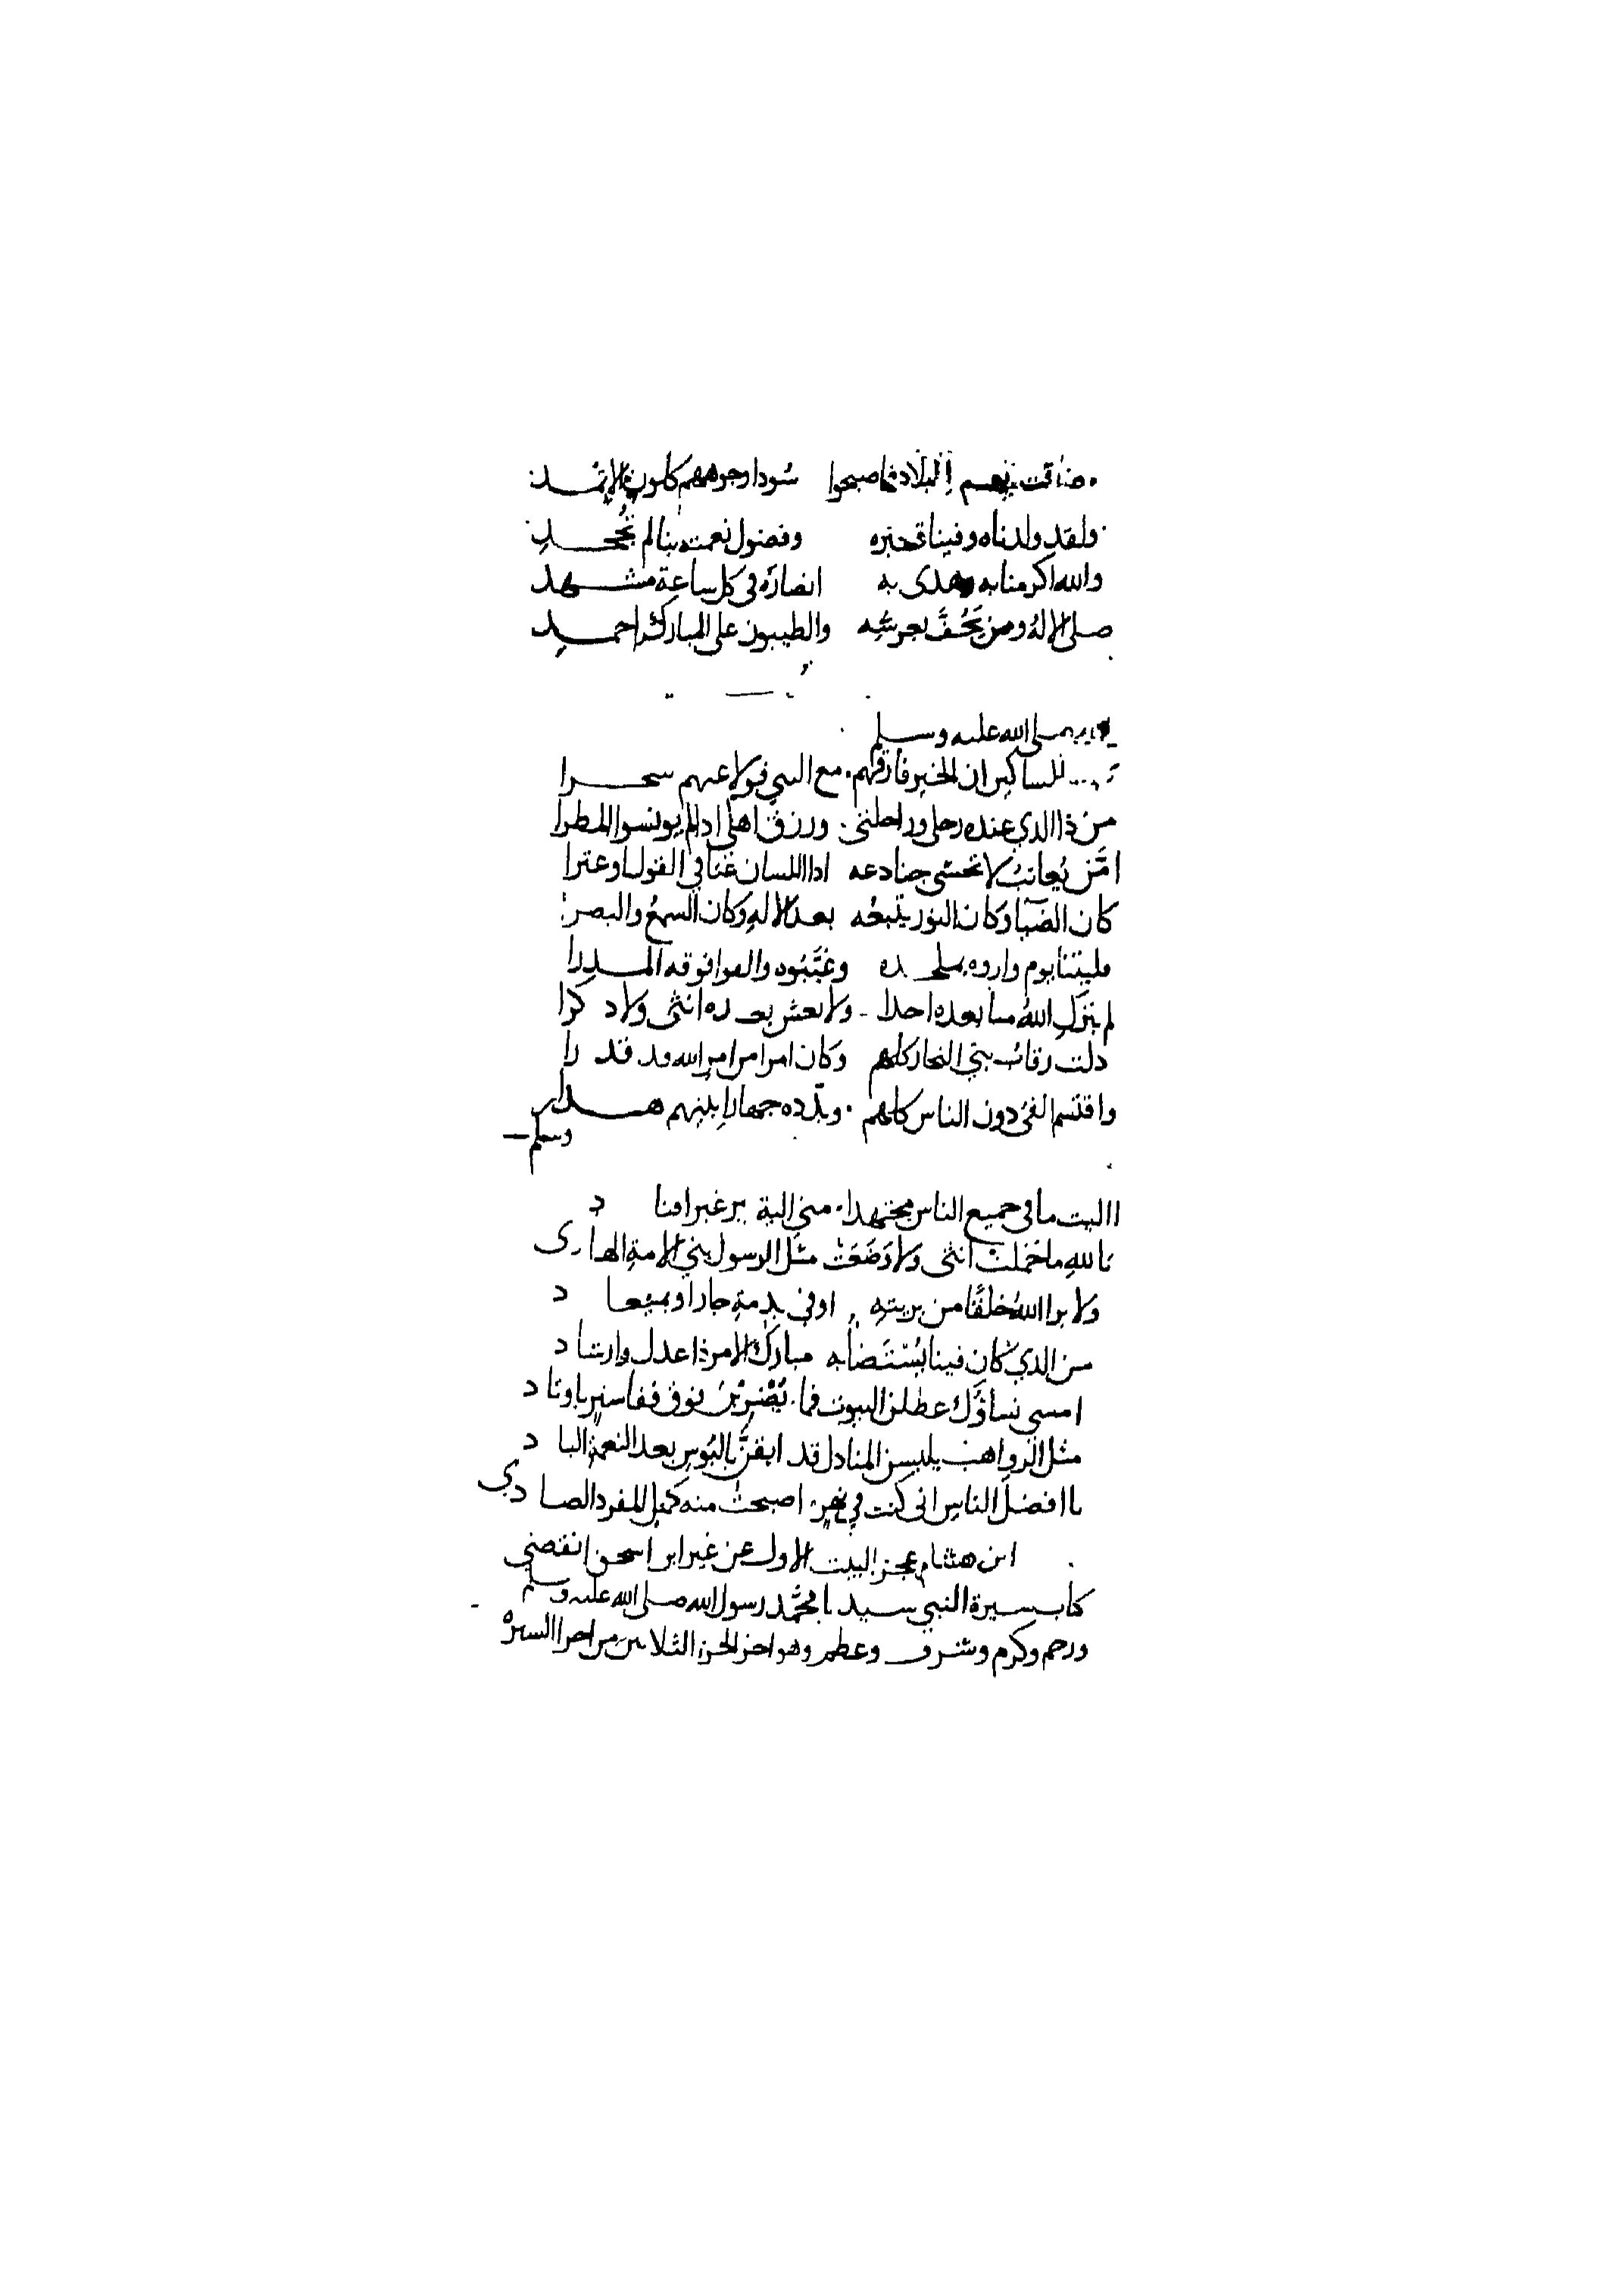 ضاقت بهم البلاد فاصبحوا سُودا وجوههم كلون الاثمد
ولقد ولدناه وفينا قبره وفضول نعمته بنا لم تُجحدِ
والله اكرمنا به وهدى به انصارَه في كل ساعةِ مشهد
صلى الاِلهُ ومن يَحُفُّ بعرشِه والطيبون على المبارك احمدِ
صلى الله عليه وسلم
للمساكين ان الخير فارقهم مع النبي تولا عنهم سحرا
من ذا الذي عنده رحلي وراحلتي ورزق اهلي اذا لم يونسوا المطرا
امَّن يُعاتبُ لا تخشى جنادعه اذا اللسان عَتا في القول او عثرا
كان الضيَآ وكان النور يتبعُه بعد الالهِ وكان السمعُ والبصرا
فليتنا يوم واروه بملحده وغيَّبُوه والقوا فوقه المدرا
لم يتركِ اللهُ منا بعده احدا ولا يعش بعده انثى ولا ذكرا
ذلت رقابُ بني النجار كلهم وكان امرا من امر الله قد قدرا
واقتسم الفئ دون الناس كلهم وبدّدُه جهارا بينهم هدرا
وسلم
اليت ما في جميع الناس مجتهدا مني الية بر غير افناد
تاللهِ ما حَملت انثى ولا وَضَعَت مثل الرسول نبي الامةِ الهادى
ولا برا اللهُ خلقًا من بريتِه اوفى بذمةِ جار او بميعاد
من الذي كان فينا يُسْتَضاُ به مبارك الامر ذا عدل وارشاد
امسي نساؤك عطلن البيوت فما يَضْرِبْنَ فوق قفا ستر باوتاد
مثل الرواهب يلبسن المباذل قد ايقنَّ بالبُوسِ بعد النعمةِ الباد
يا افضلَ الناسِ اني كنت في نهرٍ اصبحتُ منه كمثل المفرد الصادي
ابن هشام عجز البيت الاول عن غير ابن اسحق انقضى
كتاب سيرة النبي سيدنا محمَّد رسول الله صلى الله عليه وسلم
ورحم وكرم وشرف وعظم وهو اخر الجزء الثلاثين من اجزا السيرة